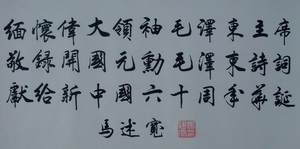 緬懷偉大領袖毛澤東主席
敬録開國元勳毛澤東詩詞
獻給新中國六十周年華誕
馬述寬